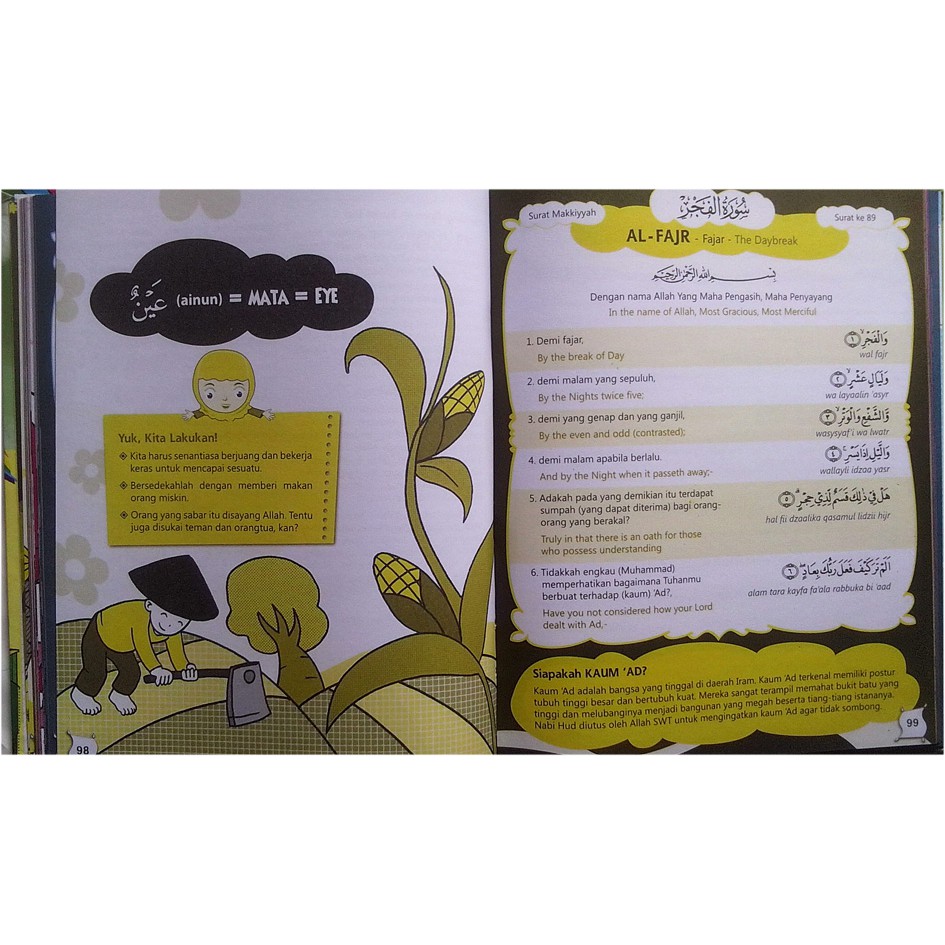 عَيْنٌ (ainun) = MATA = EYE
Yuk, Kita Lakukan!
❖ Kita harus senantiasa berjuang dan bekerja
keras untuk mencapai sesuatu.
❖ Bersedekahlah dengan memberi makan
orang miskin.
❖ Orang yang sabar itu disayang Allah. Tentu
juga disukai teman dan orangtua, kan?
98
Surat Makkiyyah
سُورَةُ الْفَجْرِ
Surat ke 89
AL-FAJR - Fajar - The Daybreak
بِسْمِ اللهِ الرَّحْمٰنِ الرَّحِيْمِ
Dengan nama Allah Yang Maha Pengasih, Maha Penyayang
In the name of Allah, Most Gracious, Most Merciful
1. Demi fajar,
By the break of Day
وَالْفَجْرِۙ ١
wal fajr
2. demi malam yang sepuluh,
By the Nights twice five;
وَلَيَالٍ عَشْرٍۙ ٢
wa layaalin 'asyr
3. demi yang genap dan yang ganjil,
By the even and odd (contrasted);
وَّالشَّفْعِ وَالْوَتْرِۙ ٣
wasysyaf'i wa lwatr
4. demi malam apabila berlalu.
And by the Night when it passeth away;-
وَالَّيْلِ اِذَا يَسْرِۚ ٤
wallayli idzaa yasr
5. Adakah pada yang demikian itu terdapat
sumpah (yang dapat diterima) bagi orang-
orang yang berakal?
Truly in that there is an oath for those
who possess understanding
هَلْ فِيْ ذٰلِكَ قَسَمٌ لِّذِيْ حِجْرٍۗ ٥
hal fii dzaalika qasamul lidzii hijr
6. Tidakkah engkau (Muhammad)
memperhatikan bagaimana Tuhanmu
berbuat terhadap (kaum) 'Ad?,
Have you not considered how your Lord
dealt with Ad,-
اَلَمْ تَرَ كَيْفَ فَعَلَ رَبُّكَ بِعَادٍۖ ٦
alam tara kayfa fa'ala rabbuka bi 'aad
Siapakah KAUM 'AD?
Kaum 'Ad adalah bangsa yang tinggal di daerah Iram. Kaum 'Ad terkenal memiliki postur
tubuh tinggi besar dan bertubuh kuat. Mereka sangat terampil memahat bukit batu yang
tinggi dan melubanginya menjadi bangunan yang megah beserta tiang-tiang istananya.
Nabi Hud diutus oleh Allah SWT untuk mengingatkan kaum 'Ad agar tidak sombong.
99